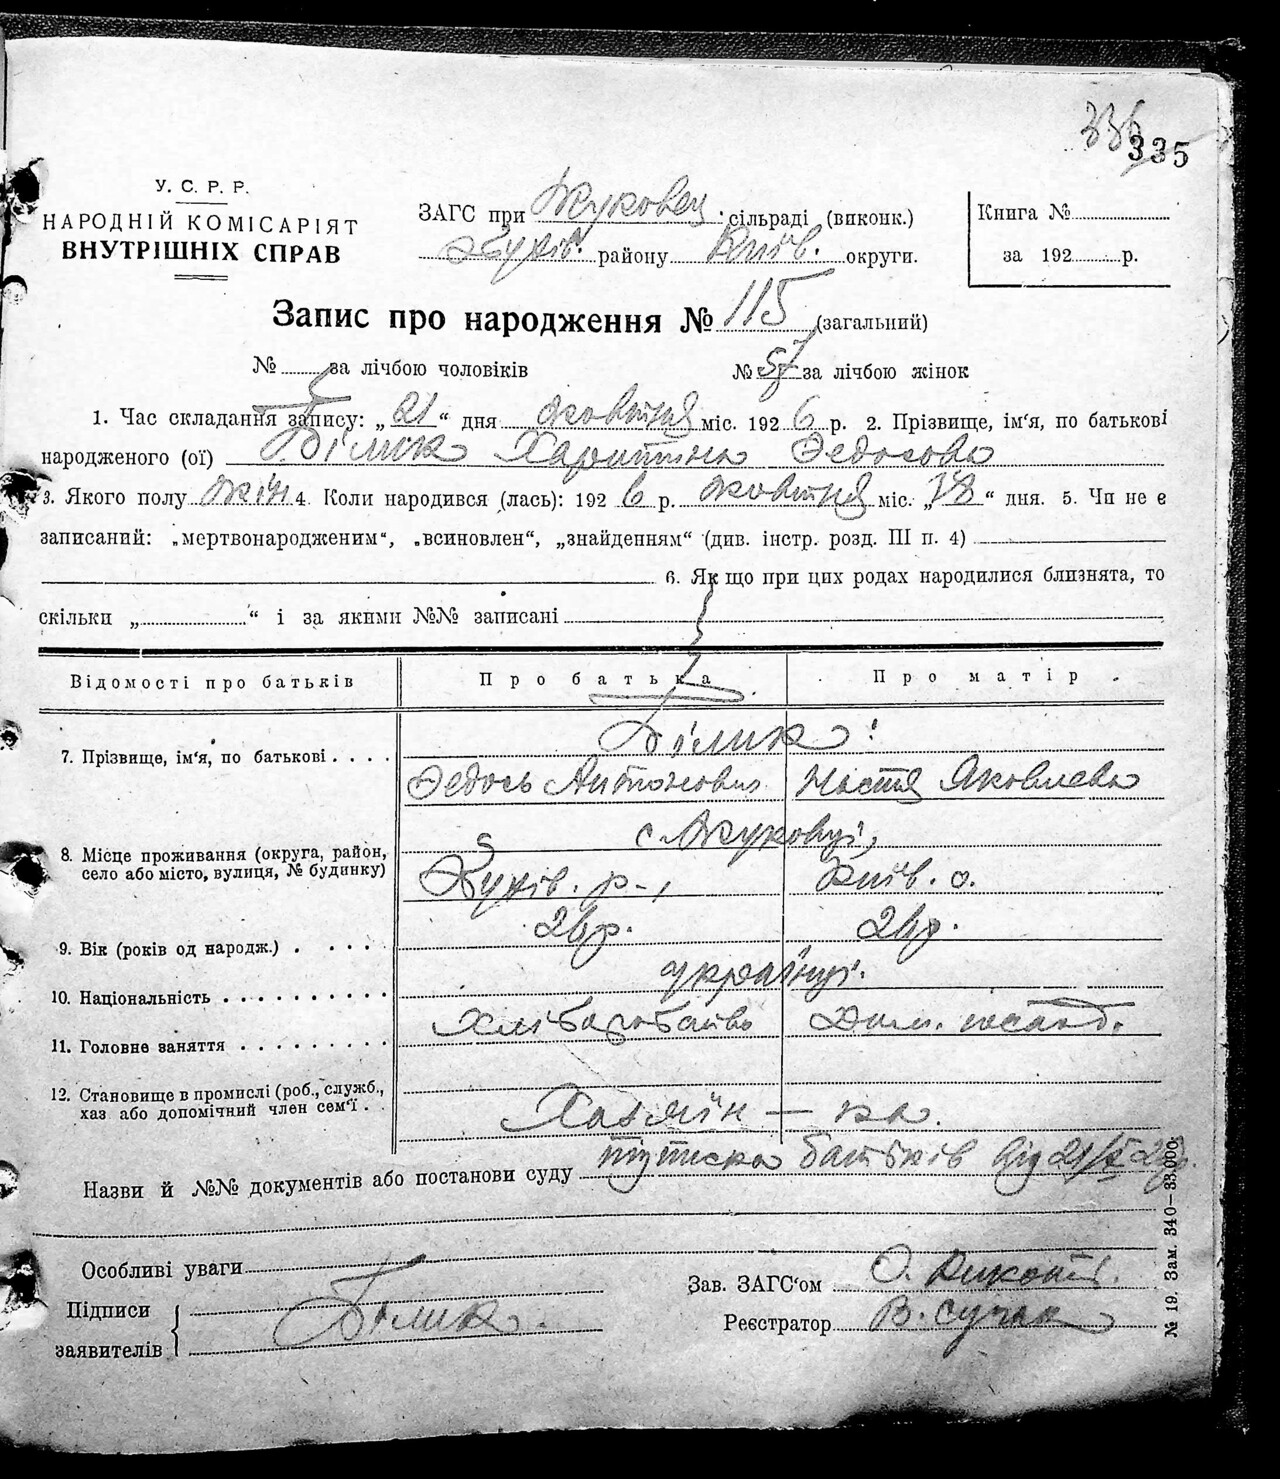 336
335
У. С. Р. Р.
НАРОДНІЙ КОМІСАРІЯТ
ВНУТРІШНІХ СПРАВ
ЗАГС при Жуковец. сільраді (виконк.)
Обухів. району Київ. округи.
Книга №
за 192 р.
Запис про народження № 115 (загальний)
№ за лічбою чоловіків № 57 за лічбою жінок
1. Час складання запису: „21“ дня жовтня міс. 1926 р. 2. Прізвище, ім'я, по батькові
народженого (ої) Білик Харитина Федосова
3. Якого полу жін 4. Коли народився (лась): 1926 р. жовтня міс. „18“ дня. 5. Чи не є
записаний: „мертвонародженим“, „всиновлен“, „знайденням“ (див. інстр. розд. III п. 4)
6. Якщо при цих родах народилися близнята, то
скільки „ “ і за якими №№ записані
Відомості про батьків Про батька Про матір
7. Прізвище, ім'я, по батькові Білик:
Федось Антонович Настя Яковлева
8. Місце проживання (округа, район, село або місто, вулиця, № будинку) с. Жуковці,
Обухів. р-, Київ. о.
9. Вік (років од народж.) 26р. 26р.
10. Національність українці.
11. Головне заняття Хліборобство Дом. господ.
12. Становище в промислі (роб., служб.,
хаз або допомічний член сем'ї Хазяїн — ка.
Назви й №№ документів або постанови суду підписка батьків від 21/X 26р.
Особливі уваги
Підписи
заявителів Білик.
Зав. ЗАГС'ом О.
Реєстратор В.
№ 19. Зам. 340—33.000.